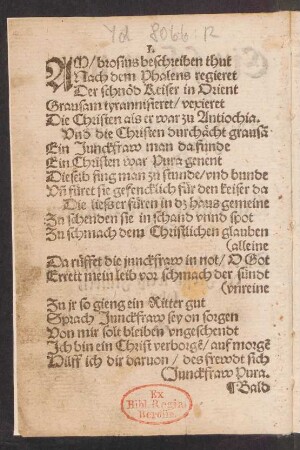 Yd 8066 R
I.
AM/brosius beschreiben thut
Nach dem Pholens regieret
Der schnöd Keiser in Orient
Grausam tyrannisieret/ vexieret
Die Christen als er war zu Antiochia.
Vnd die Christen durchächt grausā
Ein Junckfraw man da funde
Ein Christen war Pura genent
Dieselb fing man zu stunde/vnd bunde
Vn̄ füret sie gefencklich für den keiser da
Die ließ er füren in dz haus gemeine
Zu schenden sie in schand vnnd spot
Zu schmach dem Christlichen glauben
(alleine
Da rüffet die junckfraw in not/ O Got
Erretit mein leib vor schmach der sündt
(vnreine
Zu jr so gieng ein Ritter gut
Sprach Junckfraw sey on sorgen
Von mir solt bleiben vngeschendt
Ich bin ein Christ verborgē/ auf morgē
Hilff ich dir daruon/ des frewdt sich
(Junckfraw Pura.
¶Bald
Ex
Bibl. Regia
Berolin.